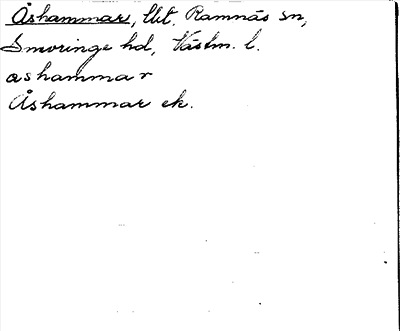 Åshammar, lbt, Ramnäs sn,
Snevringe hd, Västm. l.
ashammar
Åshammar ek.